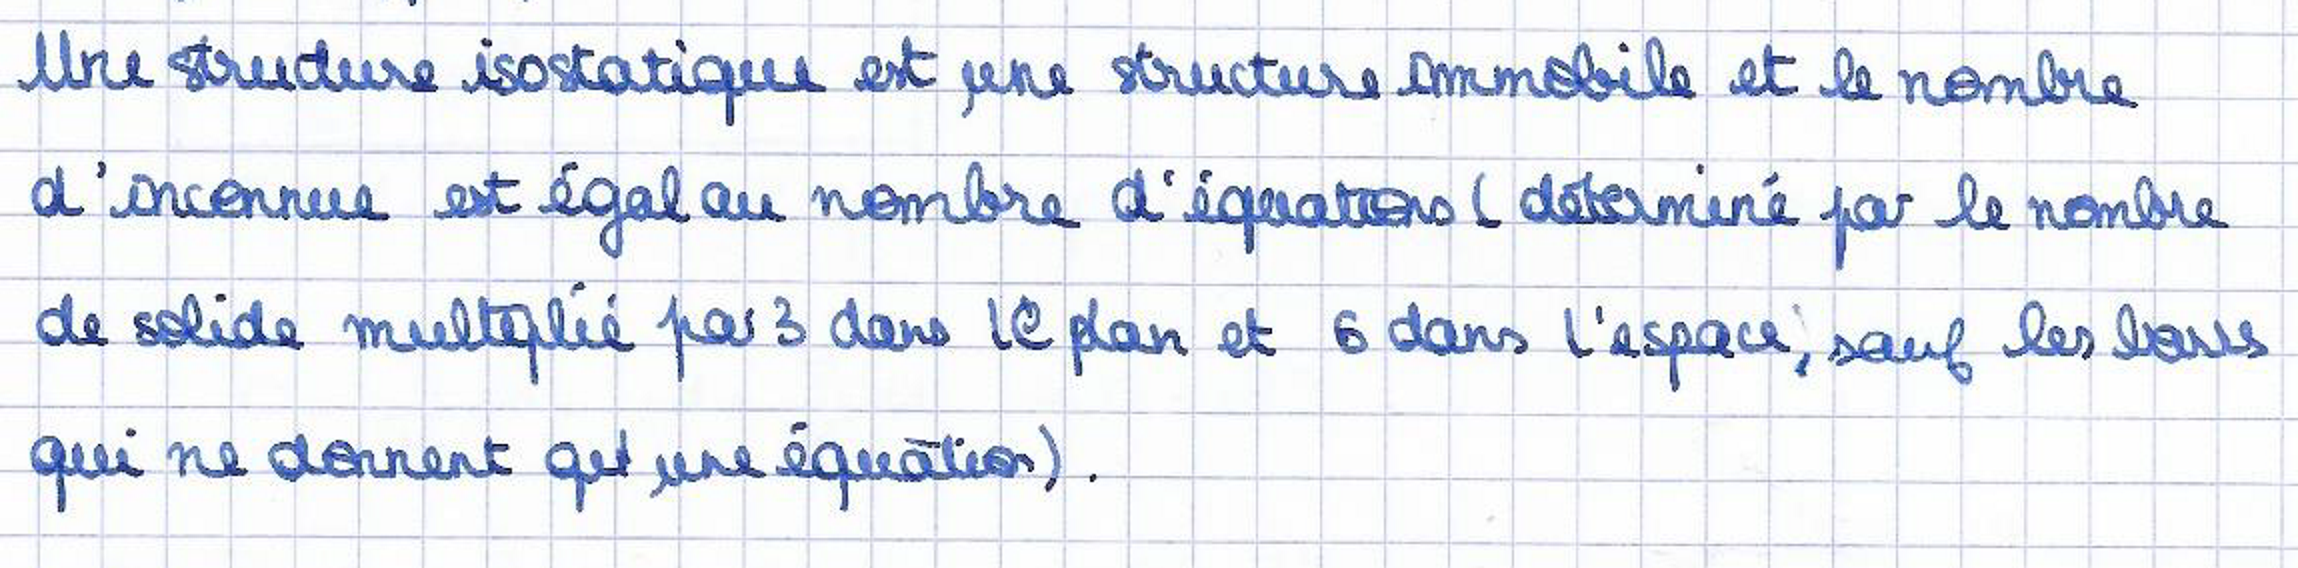 Une structure isostatique est une structure immobile et le nombre
d'inconnue est égal au nombre d'équations ( déterminé par le nombre
de solide multiplié par 3 dans le plan et 6 dans l'espace, sauf les barres
qui ne donnent qu'une équation).